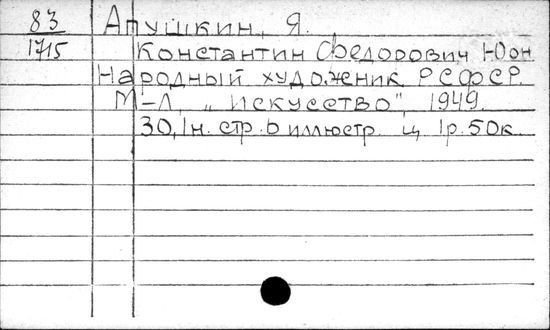 83 Апушкин, Я.
1715 Константин Федорович Юон
Народный художник РСФСР.
М-Л, „Искусство", 1949.
30,1н. стр. с иллюстр. ц. 1р. 50к.